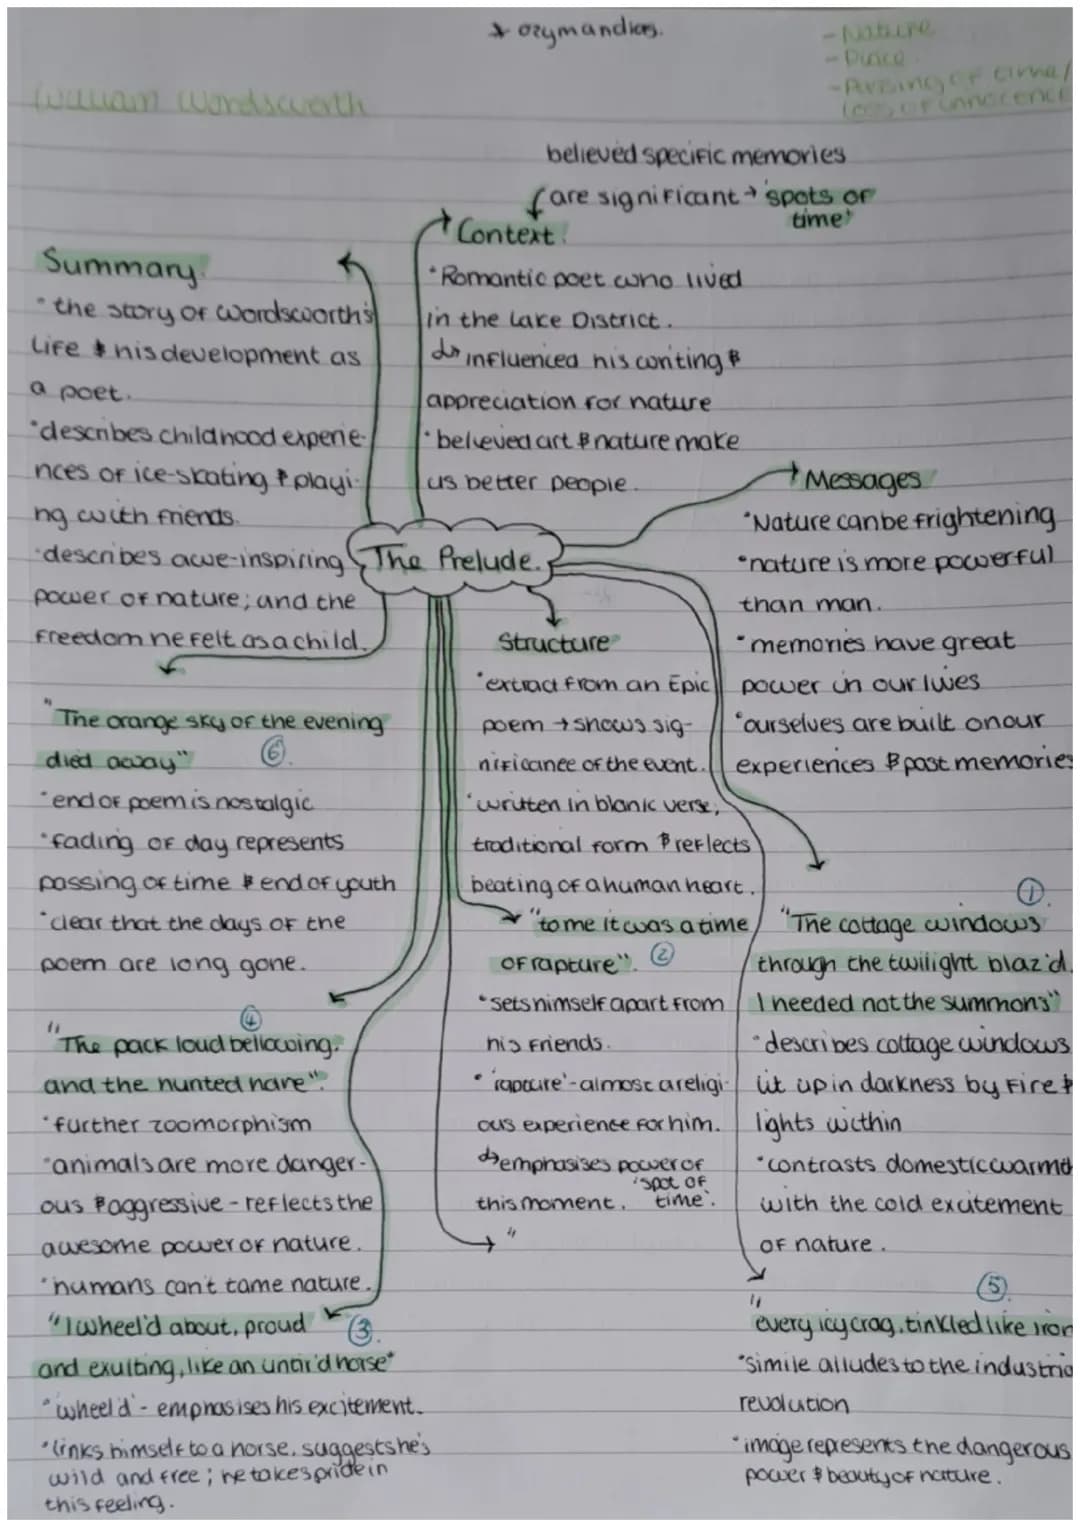 * ozymandias.
- Nature
- Place
- Passing of time /
loss of innocence
William Wordsworth
believed specific memories
are significant → 'spots of
time'
Context:
• Romantic poet who lived
in the Lake District.
↳ influenced his writing &
appreciation for nature
• believed art & nature make
us better people.
Summary:
• the story of Wordsworth's
Life & his development as
a poet.
• describes childhood experie-
nces of ice-skating & playi-
ng with friends.
• describes awe-inspiring
power of nature; and the
freedom he felt as a child.
The Prelude.
Messages
• Nature can be frightening
• nature is more powerful
than man.
• memories have great
power in our lives
• ourselves are built on our
experiences & past memories
Structure
• extract from an Epic
poem → shows sig-
nificance of the event.
• written in blank verse,
traditional form & reflects
beating of a human heart.
"The orange sky of the evening
died away" 6.
• end of poem is nostalgic
• fading of day represents
passing of time & end of youth
• clear that the days of the
poem are long gone.
"to me it was a time
of rapture". 2
• sets himself apart from
his friends.
• 'rapture' - almost a religi-
ous experience for him.
↳ emphasises power of
this moment. 'spot of
time'.
"
1.
"The cottage windows
through the twilight blaz'd.
I needed not the summons"
• describes cottage windows
lit up in darkness by fire &
lights within
• contrasts domestic warmth
with the cold excitement
of nature.
4
"The pack loud bellowing.
and the hunted hare".
• further zoomorphism
• animals are more danger-
ous & aggressive - reflects the
awesome power of nature.
• humans can't tame nature.
"I wheel'd about, proud 3.
and exulting, like an untir'd horse"
• 'wheel'd' - emphasises his excitement.
• links himself to a horse, suggests he's
wild and free; he takes pride in
this feeling.
5.
"every icy crag, tinkled like iron
• simile alludes to the industria
revolution
• image represents the dangerous
power & beauty of nature.